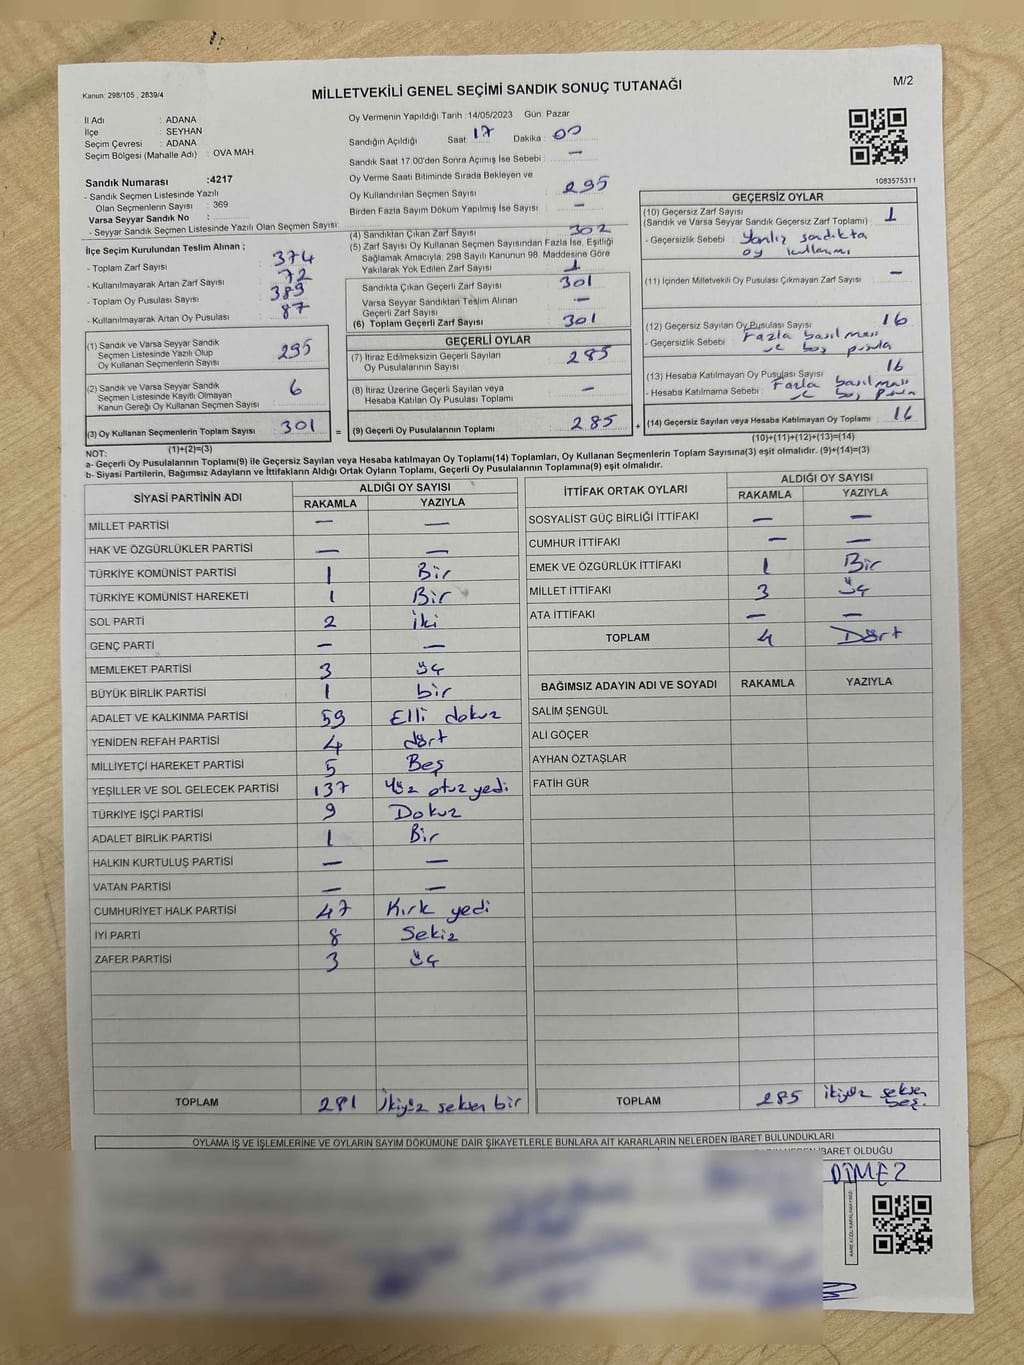 Kanun: 298/105 , 2839/4
MİLLETVEKİLİ GENEL SEÇİMİ SANDIK SONUÇ TUTANAĞI
M/2
İl Adı : ADANA
İlçe : SEYHAN
Seçim Çevresi : ADANA
Seçim Bölgesi (Mahalle Adı) : OVA MAH
Sandık Numarası :4217
- Sandık Seçmen Listesinde Yazılı
Olan Seçmenlerin Sayısı : 369
Varsa Seyyar Sandık No :
- Seyyar Sandık Seçmen Listesinde Yazılı Olan Seçmen Sayısı:
Oy Vermenin Yapıldığı Tarih :14/05/2023 Gün: Pazar
Sandığın Açıldığı Saat : 17 Dakika : 00
Sandık Saat 17.00'den Sonra Açımış İse Sebebi : —
Oy Verme Saati Bitiminde Sırada Bekleyen ve
Oy Kullandırılan Seçmen Sayısı : 295
Birden Fazla Sayım Döküm Yapılmış İse Sayısı : —
1083575311
İlçe Seçim Kurulundan Teslim Alınan ;
- Toplam Zarf Sayısı : 374
- Kullanılmayarak Artan Zarf Sayısı : 72
- Toplam Oy Pusulası Sayısı : 389
- Kullanılmayarak Artan Oy Pusulası : 87
(1) Sandık ve Varsa Seyyar Sandık
Seçmen Listesinde Yazılı Olup
Oy Kullanan Seçmenlerin Sayısı : 295
(2) Sandık ve Varsa Seyyar Sandık
Seçmen Listesinde Kayıtlı Olmayan
Kanun Gereği Oy Kullanan Seçmen Sayısı : 6
(3) Oy Kullanan Seçmenlerin Toplam Sayısı : 301
(1)+(2)=(3)
(4) Sandıktan Çıkan Zarf Sayısı : 302
(5) Zarf Sayısı Oy Kullanan Seçmen Sayısından Fazla İse, Eşitliği
Sağlamak Amacıyla; 298 Sayılı Kanunun 98. Maddesine Göre
Yakılarak Yok Edilen Zarf Sayısı : 1
Sandıkta Çıkan Geçerli Zarf Sayısı : 301
Varsa Seyyar Sandıktan Teslim Alınan
Geçerli Zarf Sayısı : —
(6) Toplam Geçerli Zarf Sayısı : 301
GEÇERLİ OYLAR
(7) İtiraz Edilmeksizin Geçerli Sayılan
Oy Pusulası Sayısı : 285
(8) İtiraz Üzerine Geçerli Sayılan veya
Hesaba Katılan Oy Pusulası Toplamı : —
= (9) Geçerli Oy Pusulalarının Toplamı : 285 +
GEÇERSİZ OYLAR
(10) Geçersiz Zarf Sayısı
(Sandık ve Varsa Seyyar Sandık Geçersiz Zarf Toplamı) : 1
- Geçersizlik Sebebi : Yanlız sandıkta
oy kullanımı
(11) İçinden Milletvekili Oy Pusulası Çıkmayan Zarf Sayısı : —
(12) Geçersiz Sayılan Oy Pusulası Sayısı : 16
- Geçersizlik Sebebi : Fazla basılması
ve boş pusula
(13) Hesaba Katılmayan Oy Pusulası Sayısı : 16
- Hesaba Katılmama Sebebi : Fazla basılması
ve boş pusula
(14) Geçersiz Sayılan veya Hesaba Katılmayan Oy Toplamı : 16
(10)+(11)+(12)+(13)=(14)
NOT:
a- Geçerli Oy Pusulalarının Toplamı(9) ile Geçersiz Sayılan veya Hesaba katılmayan Oy Toplamı(14) Toplamları, Oy Kullanan Seçmenlerin Toplam Sayısına(3) eşit olmalıdır. (9)+(14)=(3)
b- Siyasi Partilerin, Bağımsız Adayların ve İttifakların Aldığı Ortak Oyların Toplamı, Geçerli Oy Pusulalarının Toplamına(9) eşit olmalıdır.
SİYASİ PARTİNİN ADI ALDIĞI OY SAYISI
RAKAMLA YAZIYLA
MİLLET PARTİSİ — —
HAK VE ÖZGÜRLÜKLER PARTİSİ — —
TÜRKİYE KOMÜNİST PARTİSİ 1 Bir
TÜRKİYE KOMÜNİST HAREKETİ 1 Bir
SOL PARTİ 2 iki
GENÇ PARTİ — —
MEMLEKET PARTİSİ 3 üç
BÜYÜK BİRLİK PARTİSİ 1 bir
ADALET VE KALKINMA PARTİSİ 59 Elli dokuz
YENİDEN REFAH PARTİSİ 4 dört
MİLLİYETÇİ HAREKET PARTİSİ 5 Beş
YEŞİLLER VE SOL GELECEK PARTİSİ 137 Yüz otuz yedi
TÜRKİYE İŞÇİ PARTİSİ 9 Dokuz
ADALET BİRLİK PARTİSİ 1 Bir
HALKIN KURTULUŞ PARTİSİ — —
VATAN PARTİSİ — —
CUMHURİYET HALK PARTİSİ 47 Kırk yedi
İYİ PARTİ 8 Sekiz
ZAFER PARTİSİ 3 üç
TOPLAM 281 İkiyüz seksen bir
İTTİFAK ORTAK OYLARI ALDIĞI OY SAYISI
RAKAMLA YAZIYLA
SOSYALİST GÜÇ BİRLİĞİ İTTİFAKI — —
CUMHUR İTTİFAKI — —
EMEK VE ÖZGÜRLÜK İTTİFAKI 1 Bir
MİLLET İTTİFAKI 3 üç
ATA İTTİFAKI — —
TOPLAM 4 Dört
BAĞIMSIZ ADAYIN ADI VE SOYADI RAKAMLA YAZIYLA
SALİM ŞENGÜL
ALİ GÖÇER
AYHAN ÖZTAŞLAR
FATİH GÜR
TOPLAM 285 ikiyüz seksen
beş.
OYLAMA İŞ VE İŞLEMLERİNE VE OYLARIN SAYIM DÖKÜMÜNE DAİR ŞİKAYETLERLE BUNLARA AİT KARARLARIN NELERDEN İBARET BULUNDUKLARI
İBARET OLDUĞU